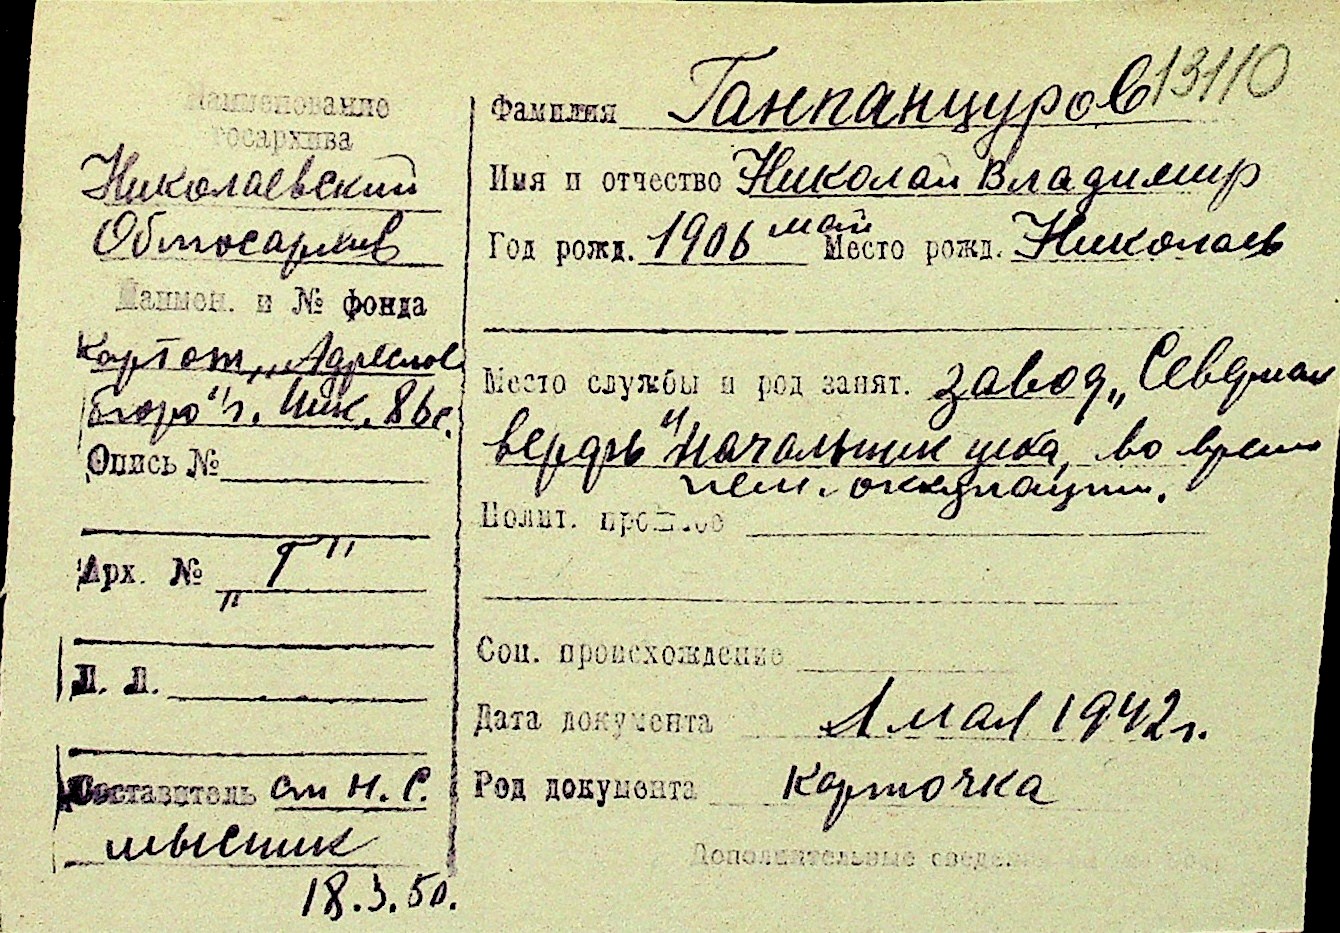 Наименование
госархива
Николаевский
Облгосархив
Наимен. и № фонда
Картот. „Адресное
бюро" г. Ник.
Опись №
Арх. № „Г"
Л. Л.
Составитель
мысник
18.3.50.
13110
Фамилия Ганпанцуров
Имя и отчество Николай Владимир
Год рожд. 1906 май Место рожд. Николаев
Место службы и род занят. завод „Северная
верфь" начальник цеха, во время
нем. оккупации.
Полит. прошлое
Соц. происхождение
Дата документа 1 мая 1942 г.
Род документа карточка
Дополнительные сведения